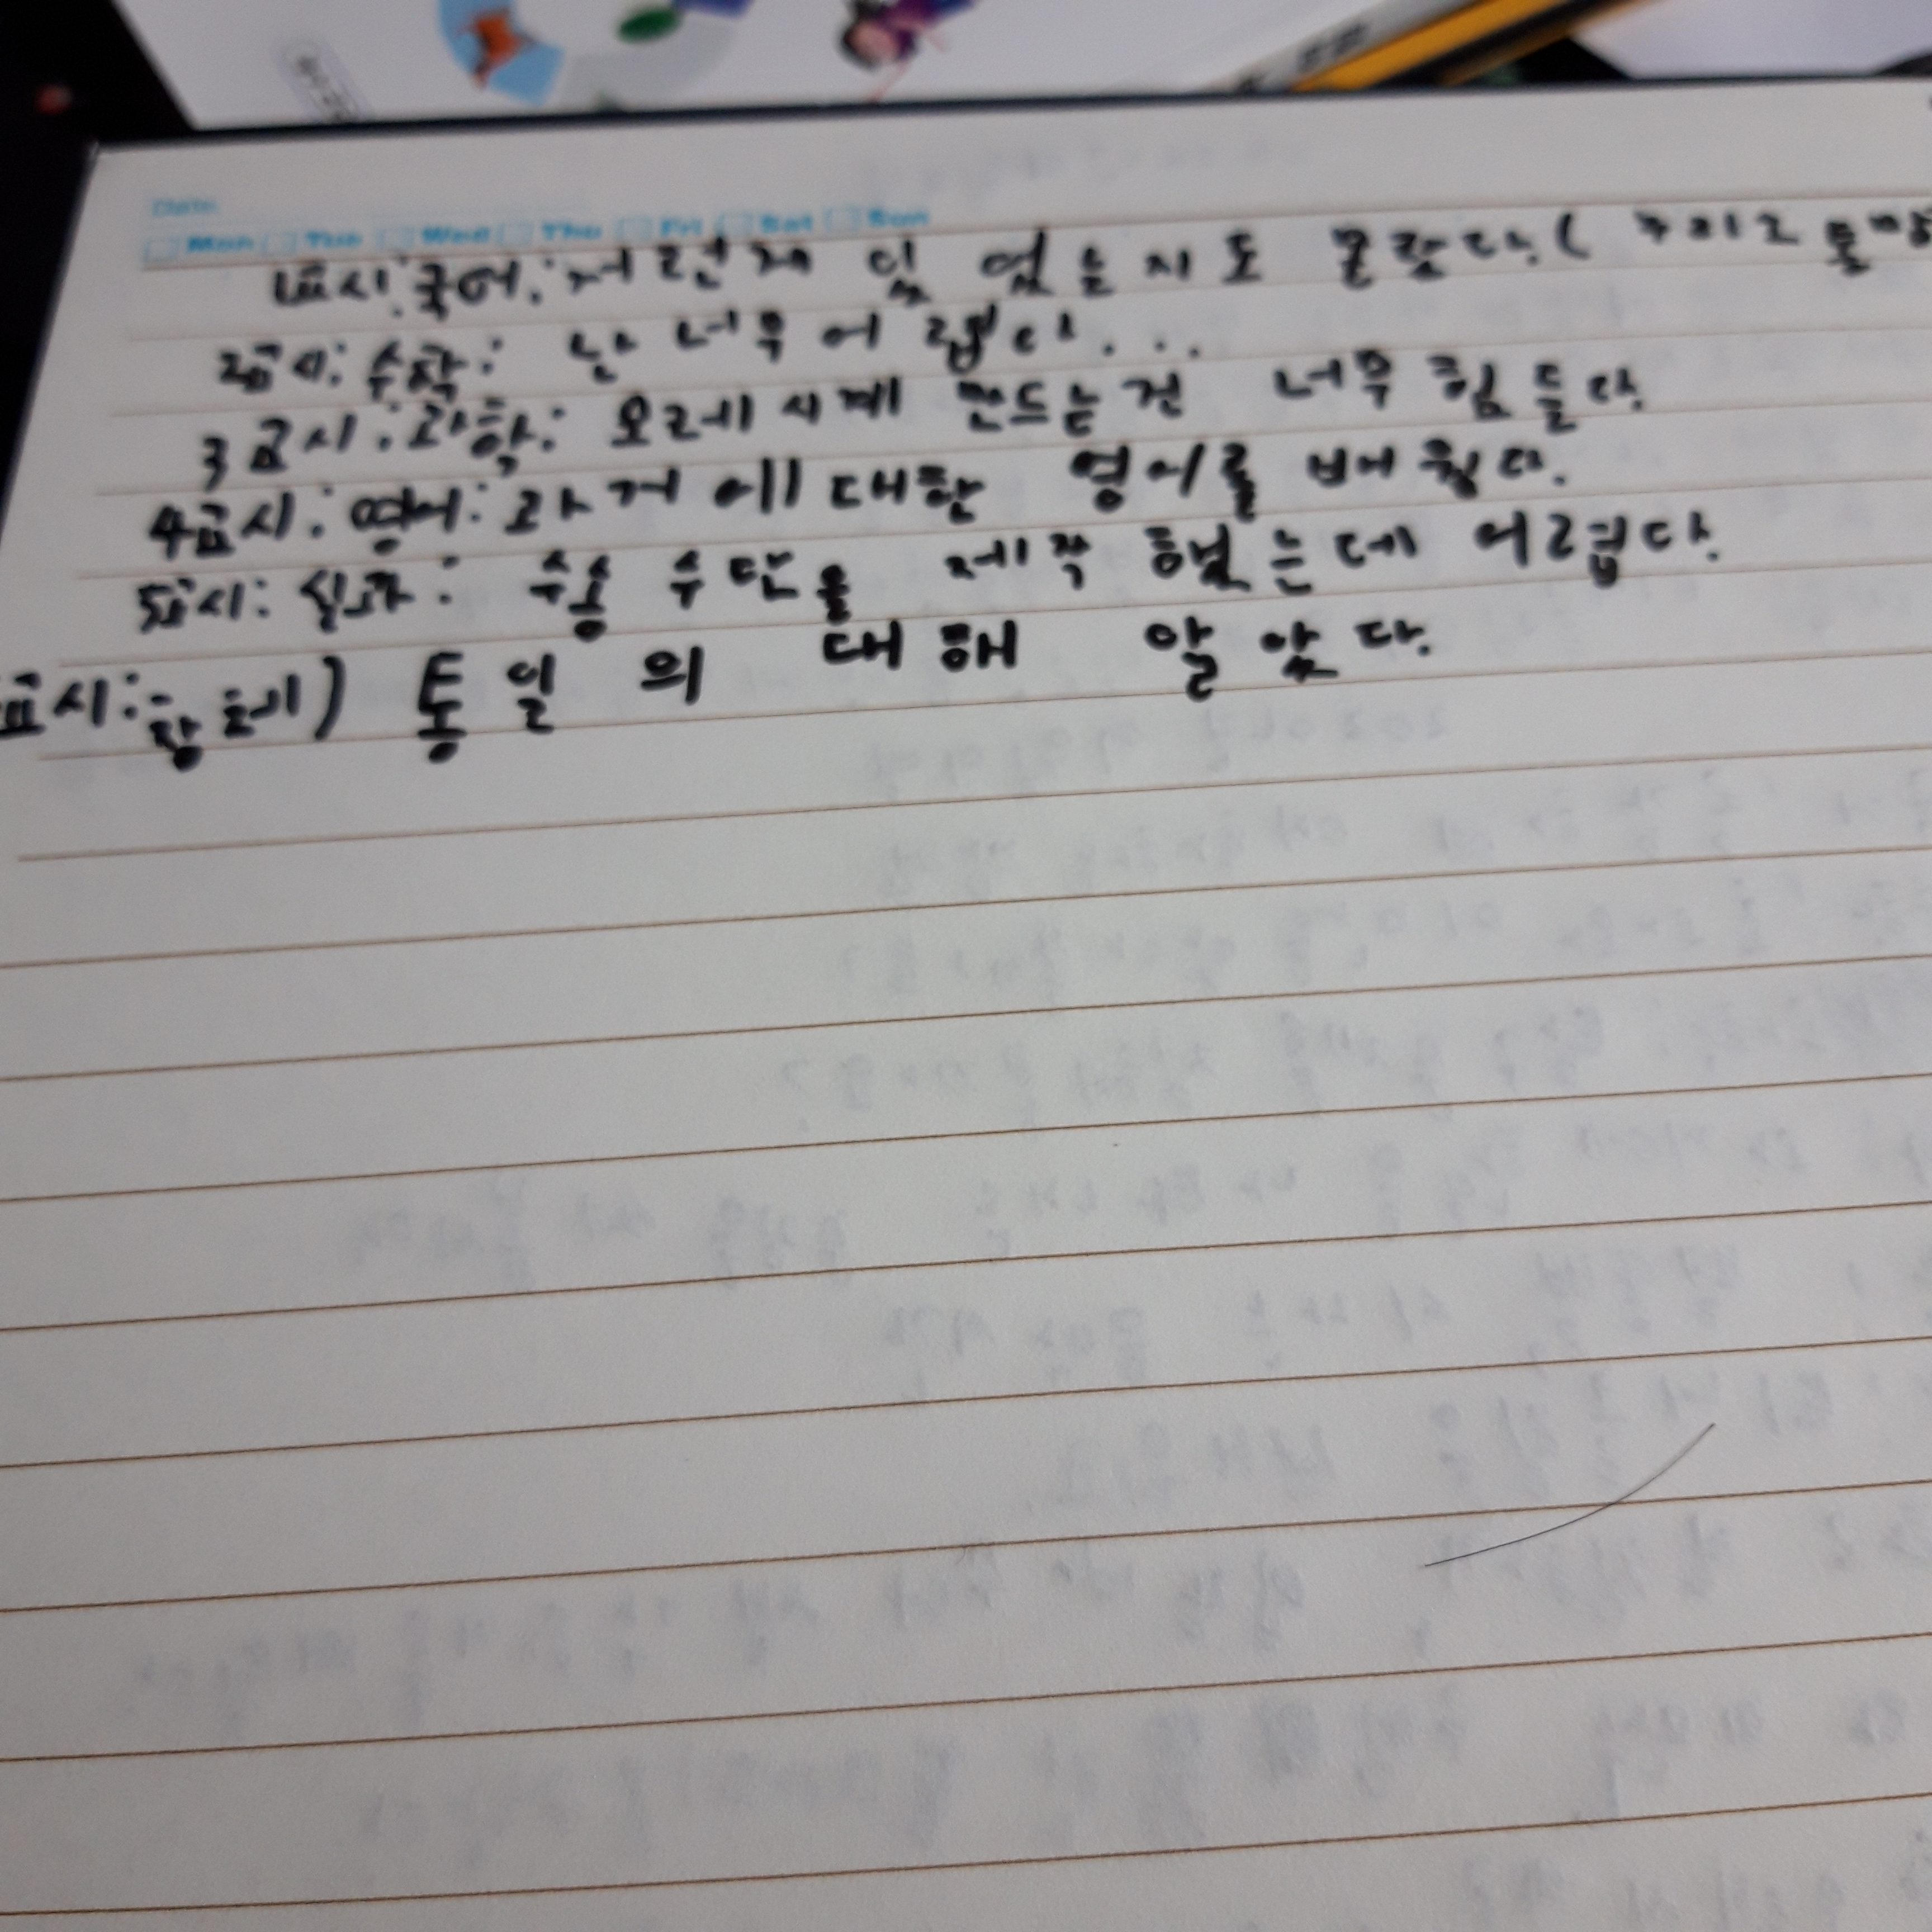 Date
Mon Tue Wed Thu Fri Sat Sun
1교시:국어: 저런게 있 었는지도 몰랐다.(
2교시: 수학: 난 너무 어렵다...
3교시:과학: 모레시계 만드는건 너무 힘들다.
4교시:영어: 과거에 대한 영어를 배웠다.
5교시: 실과: 수송 수단을 제작 했는데 어렵다.
교시: 창체) 통일의 대해 알았다.